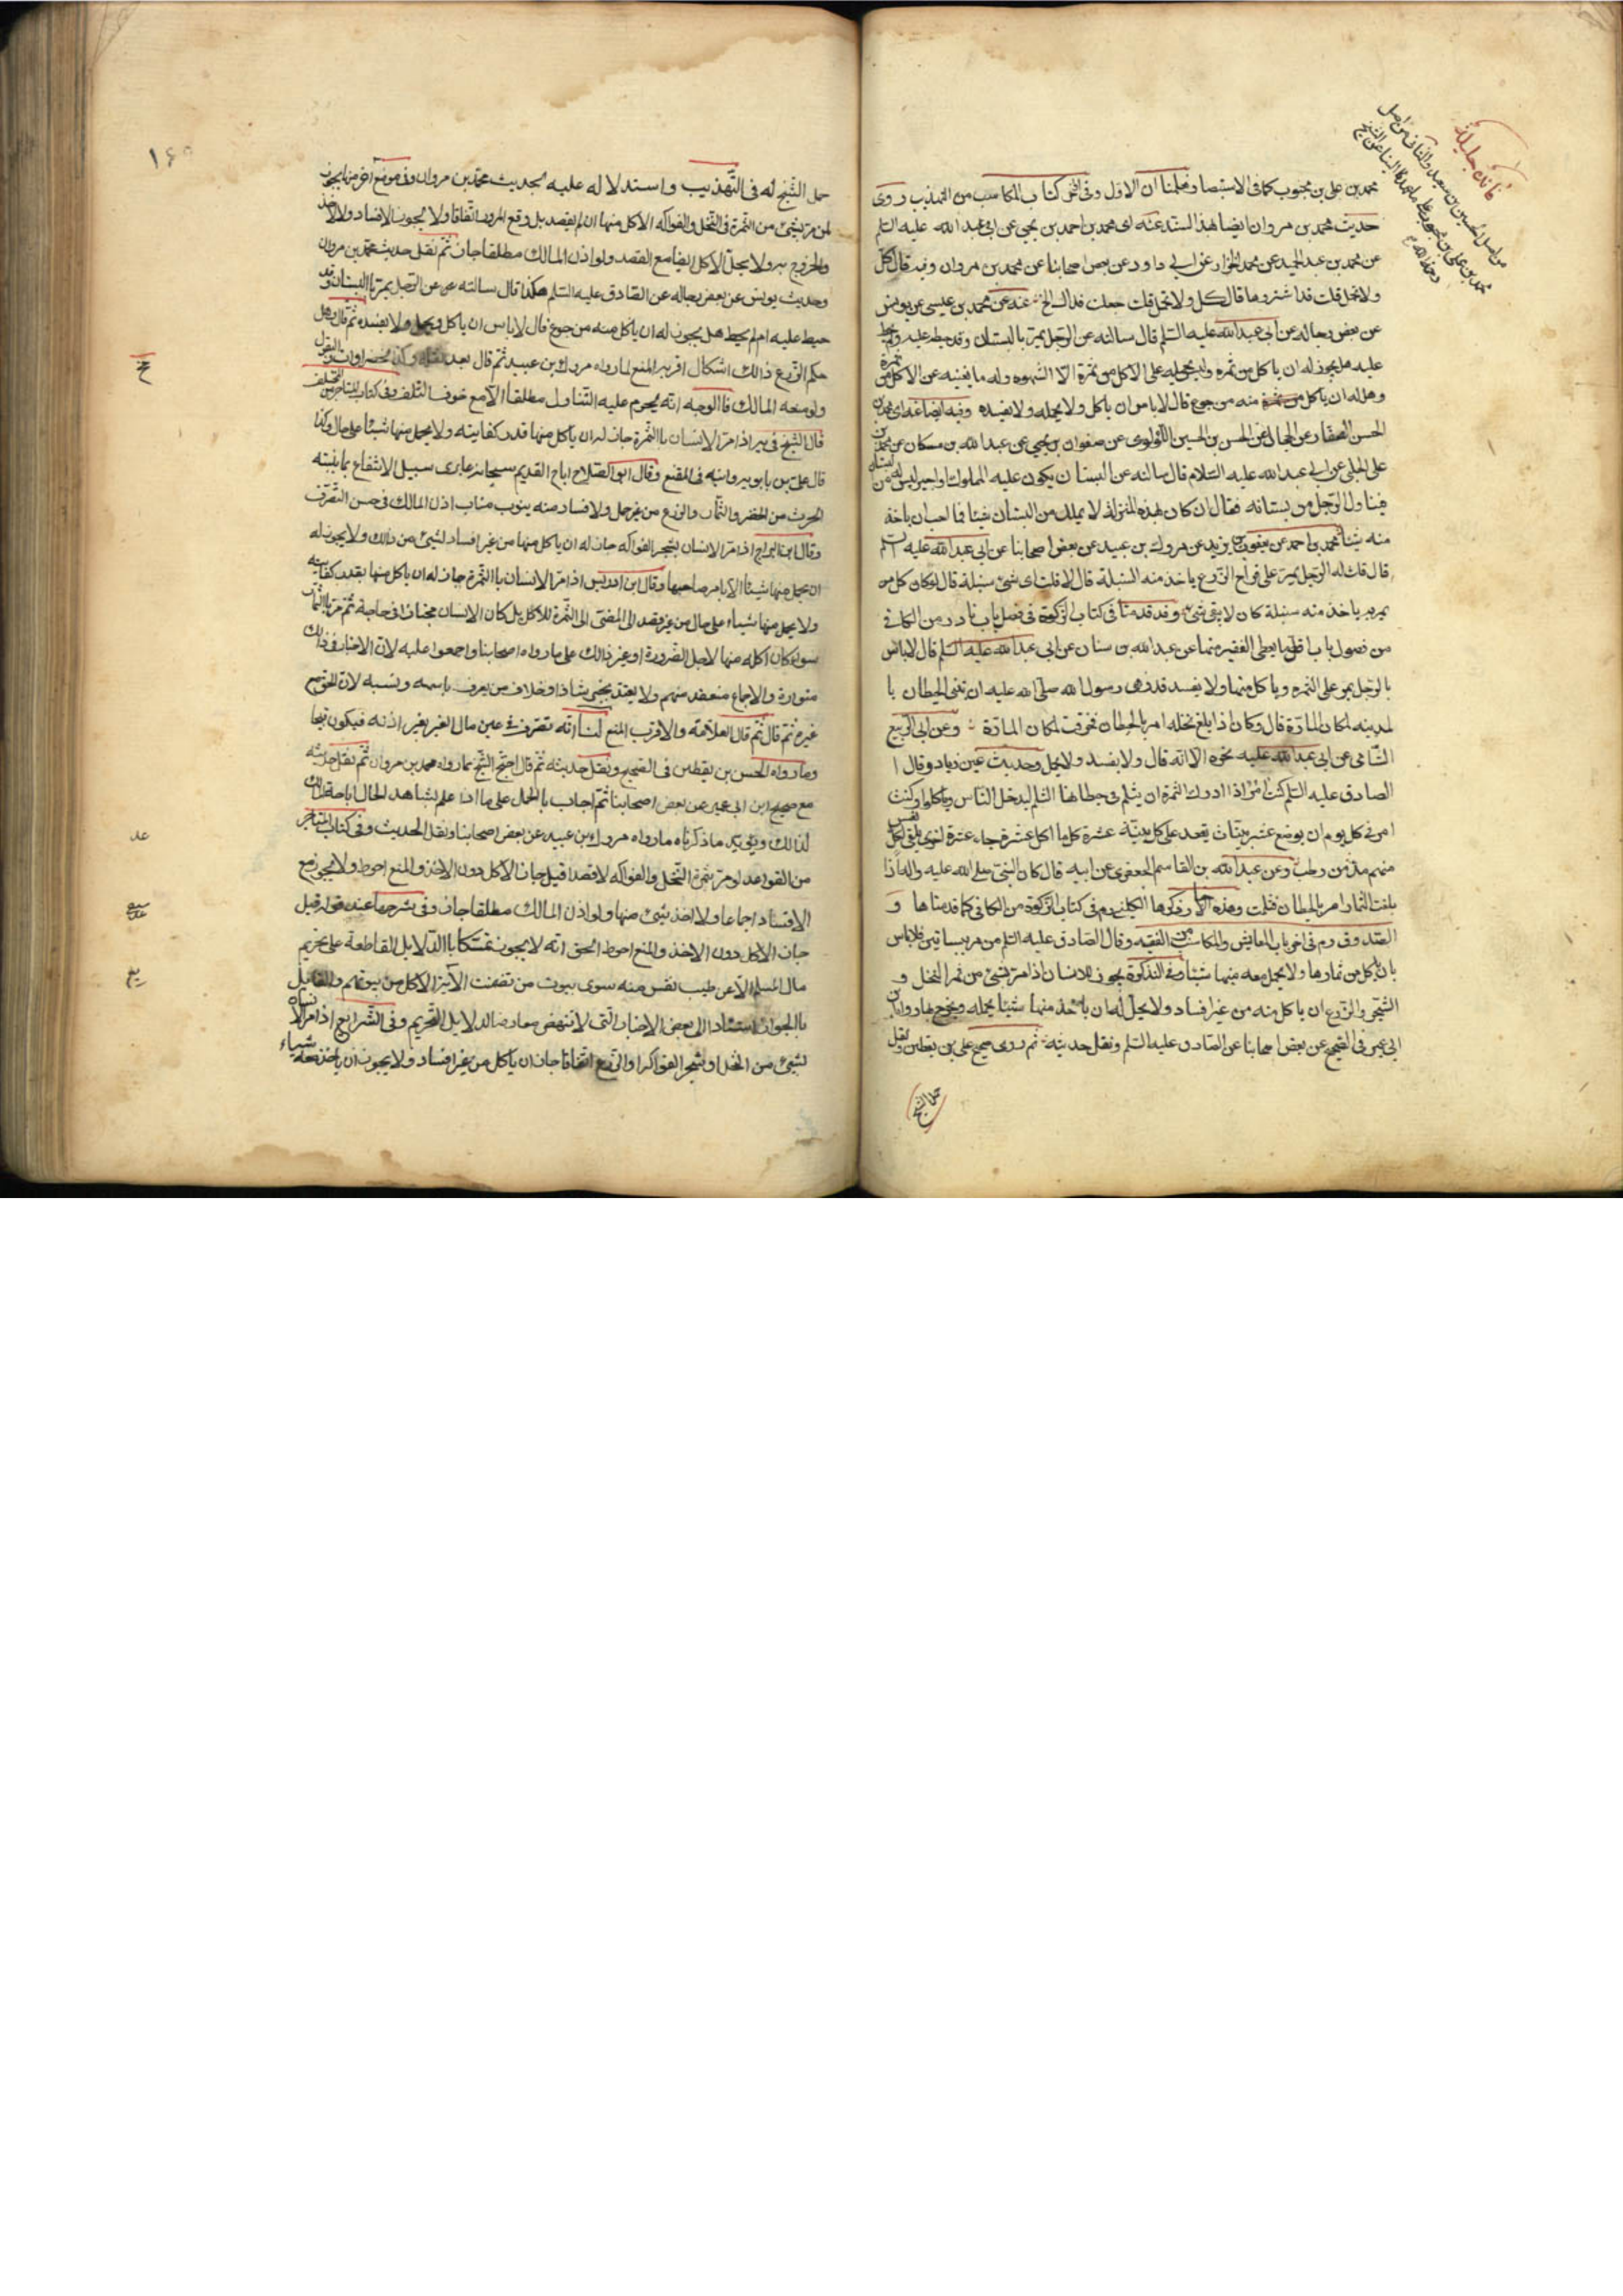 محمد بن علي بن محبوب كما في الاستبصار فعلمنا ان الاول وفي اخر كتاب المكاسب من التهذيب روى
حديث محمد بن مروان ايضا هذا لسند عنه اى محمد بن احمد بن يحيى عن ابي عبد الله عليه السلم
عن محمد بن عبد الحميد عن محمد عن ابي داود عن بعض اصحابنا عن محمد بن مروان وفيه قال كل
ولا تحمل قلت قد اشتروها قال كل ولا تحمل قلت جعلت فداك الخ عنه عن محمد بن عيسى عن يونس
عن بعض رجاله عن ابي عبد الله عليه السلم قال سالته عن الرجل يمر بالبستان وقد حيط عليه او لم يحط
عليه هل يجوز له ان ياكل من ثمره وليس يحمله على الاكل من ثمرة الا الشهوة وله ما يغنيه عن الاكل من ثمرة
وهل له ان ياكل منه من جوع قال لا باس ان ياكل ولا يحمله ولا يفسده وفيه ايضا عنه اى محمد بن
الحسن الصفار عن الحسن بن الحسين اللؤلؤى عن صفوان بن يحيى عن عبد الله بن مسكان عن محمد بن
على الحلبي عن ابي عبد الله عليه السلام قال سالته عن البستان يكون عليه المملوك او اجير ليس له من البستان شئ
فيتناول الرجل من بستانه فقال ان كان بهذه المنزلة لا يملك من البستان شيئا فما احب ان ياخذ
منه شيئا محمد بن احمد عن يعقوب بن يزيد عن مروك بن عبيد عن بعض اصحابنا عن ابي عبد الله عليه السلم
قال قلت له الرجل يمر على قراح الزرع ياخذ منه السنبلة قال لا قلت اى شئ سنبلة قال لو كان كل من
يمر به ياخذ منه سنبلة كان لا يبقى شئ وقد قدمنا في كتاب الزكوة في فصل باب نادر من الكافي
من فصول باب اقل ما يعطى الفقير منها عن عبد الله بن سنان عن ابي عبد الله عليه السلم قال لا باس
بالرجل يمر على الثمره وياكل منها ولا يفسد قد نهى رسول الله صلى الله عليه ان تبنى الحيطان با
لمدينه لمكان المارة قال وكان اذا بلغ نخله امر بالحيطان فخرقت لمكان المارة وعن ابي الربيع
الشامي عن ابي عبد الله عليه نحوه الا انه قال ولا يفسد ولا يحمل وحديث عن زياد وقال ا
الصادق عليه السلم كنت امر اذا ادركت الثمرة ان يثلم في حيطانها الثلم ليدخل الناس وياكلوا وكنت
امر في كل يوم ان يوضع عشر بنيات يقعد على كل بنية عشرة كلما اكل عشرة جاء عشرة اخرى يلقى لكل نفس
منهم مد من رطب وعن عبد الله بن القاسم الجعفرى عن ابيه قال كان النبي صلى الله عليه واله اذا
بلغت الثمار امر بالحيطان فثلمت وهذه الاخبار ذكرها الكليني ره في كتاب الزكوة من الكافي كما قدمناها و
الصدوق ره في اخر باب المعايش والمكاسب من الفقيه وقال الصادق عليه السلم من مر ببساتين فلا باس
بان ياكل من ثمارها ولا يحمل معه منها شيئا وفي التذكرة يجوز للانسان اذا مر بشئ من ثمر النخل و
الشجر والزرع ان ياكل منه من غير افساد ولا يحل له ان ياخذ منها شيئا يحمله ويخرج لما رواه ابن
ابي عمير في الصحيح عن بعض اصحابنا عن الصادق عليه السلم ونقل حديثه ثم روى صحيح علي بن يقطين ونقل
حمل الشيخ
حمل الشيخ له في التهذيب واستدلاله عليه بحديث محمد بن مروان وفي موضع اخر منه يجوز
لمن مر بشئ من الثمرة في النخل والفواكه الاكل منها ان لم يقصد بل وقع المرور اتفاقا ولا يجوز الافساد ولا الاخذ
والخروج به ولا يحل الاكل ايضا مع القصد ولو اذن المالك مطلقا جاز ثم نقل حديث محمد بن مروان
وحديث يونس عن بعض رجاله عن الصادق عليه السلم هكذا قال سالته عن الرجل يمر بالبستان وقد
حيط عليه ام لم يحط هل يجوز له ان ياكل منه من جوع قال لا باس ان ياكل ولا يحمل ولا يفسده ثم قال وهل
حكم الزرع ذالك اشكال اقربه المنع لما رواه مروك بن عبيد ثم قال بعد
ولو منعه المالك فالوجه انه يحرم عليه التناول مطلقا الا مع خوف التلف وفي كتاب المتاجر من المختلف
قال الشيخ في ير اذا مر الانسان باالثمرة جاز له ان ياكل منها قدر كفايته ولا يحمل منها شيئا على حال وكذا
قال علي بن بابويه وابنه في المقنع وقال ابو الصلاح اباح القديم سبحانه عابرى سبيل الانتفاع بما ينبته
الحرث من الخضر والثمار والزرع من غير حمل ولا افساد منه ينوب مناب اذن المالك في حسن التصرف
وقال ابن البراج اذا مر الانسان بشجر الفواكه جاز له ان ياكل منها من غير افساد لشئ من ذلك ولا يجوز له
ان يحمل منها شيئا الا بامر صاحبها وقال ابن ادريس اذا مر الانسان باالثمرة جاز له ان ياكل منها بقدر كفايته
ولا يحمل منها شيئا على حال من غير قصد الى المضى الى الثمرة للاكل بل كان الانسان مجتازا في حاجة ثم مر باالثمار
سواء كان اكله منها لاجل الضرورة او غير ذالك على ما رواه اصحابنا واجمعوا عليه لان الاخبار في ذالك
متواترة والاجماع منعقد منهم ولا يعتد بخبر شاذ او خلاف من يعرف باسمه ونسبه لان الحق مع
غيره ثم قال ثم قال العلامة والاقرب المنع لنا انه تصرف في عين مال الغير بغير اذنه فيكون قبيحا
وما رواه الحسن بن يقطين في الصحيح ونقل حديثه ثم قال احتج الشيخ بما رواه محمد بن مروان ثم نقل حديثه
مع صحيح ابن ابي عمير عن بعض اصحابنا ثم اجاب باالحمل على ما اذا علم بشاهد الحال اباحة المالك
لذالك ويؤيد ما ذكرناه ما رواه مروك بن عبيد عن بعض اصحابنا ونقل الحديث وفي كتاب المتاجر
من القواعد لو مر بثمرة النخل والفواكه لا قصدا قيل جاز الاكل دون الاخذ والمنع احوط ولا يجوز مع
الافساد اجماعا ولا اخذ شئ منها ولو اذن المالك مطلقا جاز وفي شرحها عند قوله قيل
جاز الاكل دون الاخذ والمنع احوط الحق انه لا يجوز تمسكا باالدلايل القاطعة على تحريم
مال المسلم الا عن طيب نفس منه سوى بيوت من تضمنت الآية الاكل من بيوتهم والقايل
باالجواز استنادا الى بعض الاخبار التى لا تنهض معارضا لدلايل التحريم وفي الشرايع اذا مر الانسان
بشئ من النخل او شجر الفواكه او الزرع اتفاقا جاز ان ياكل من غير افساد ولا يجوز ان ياخذ معه شياء